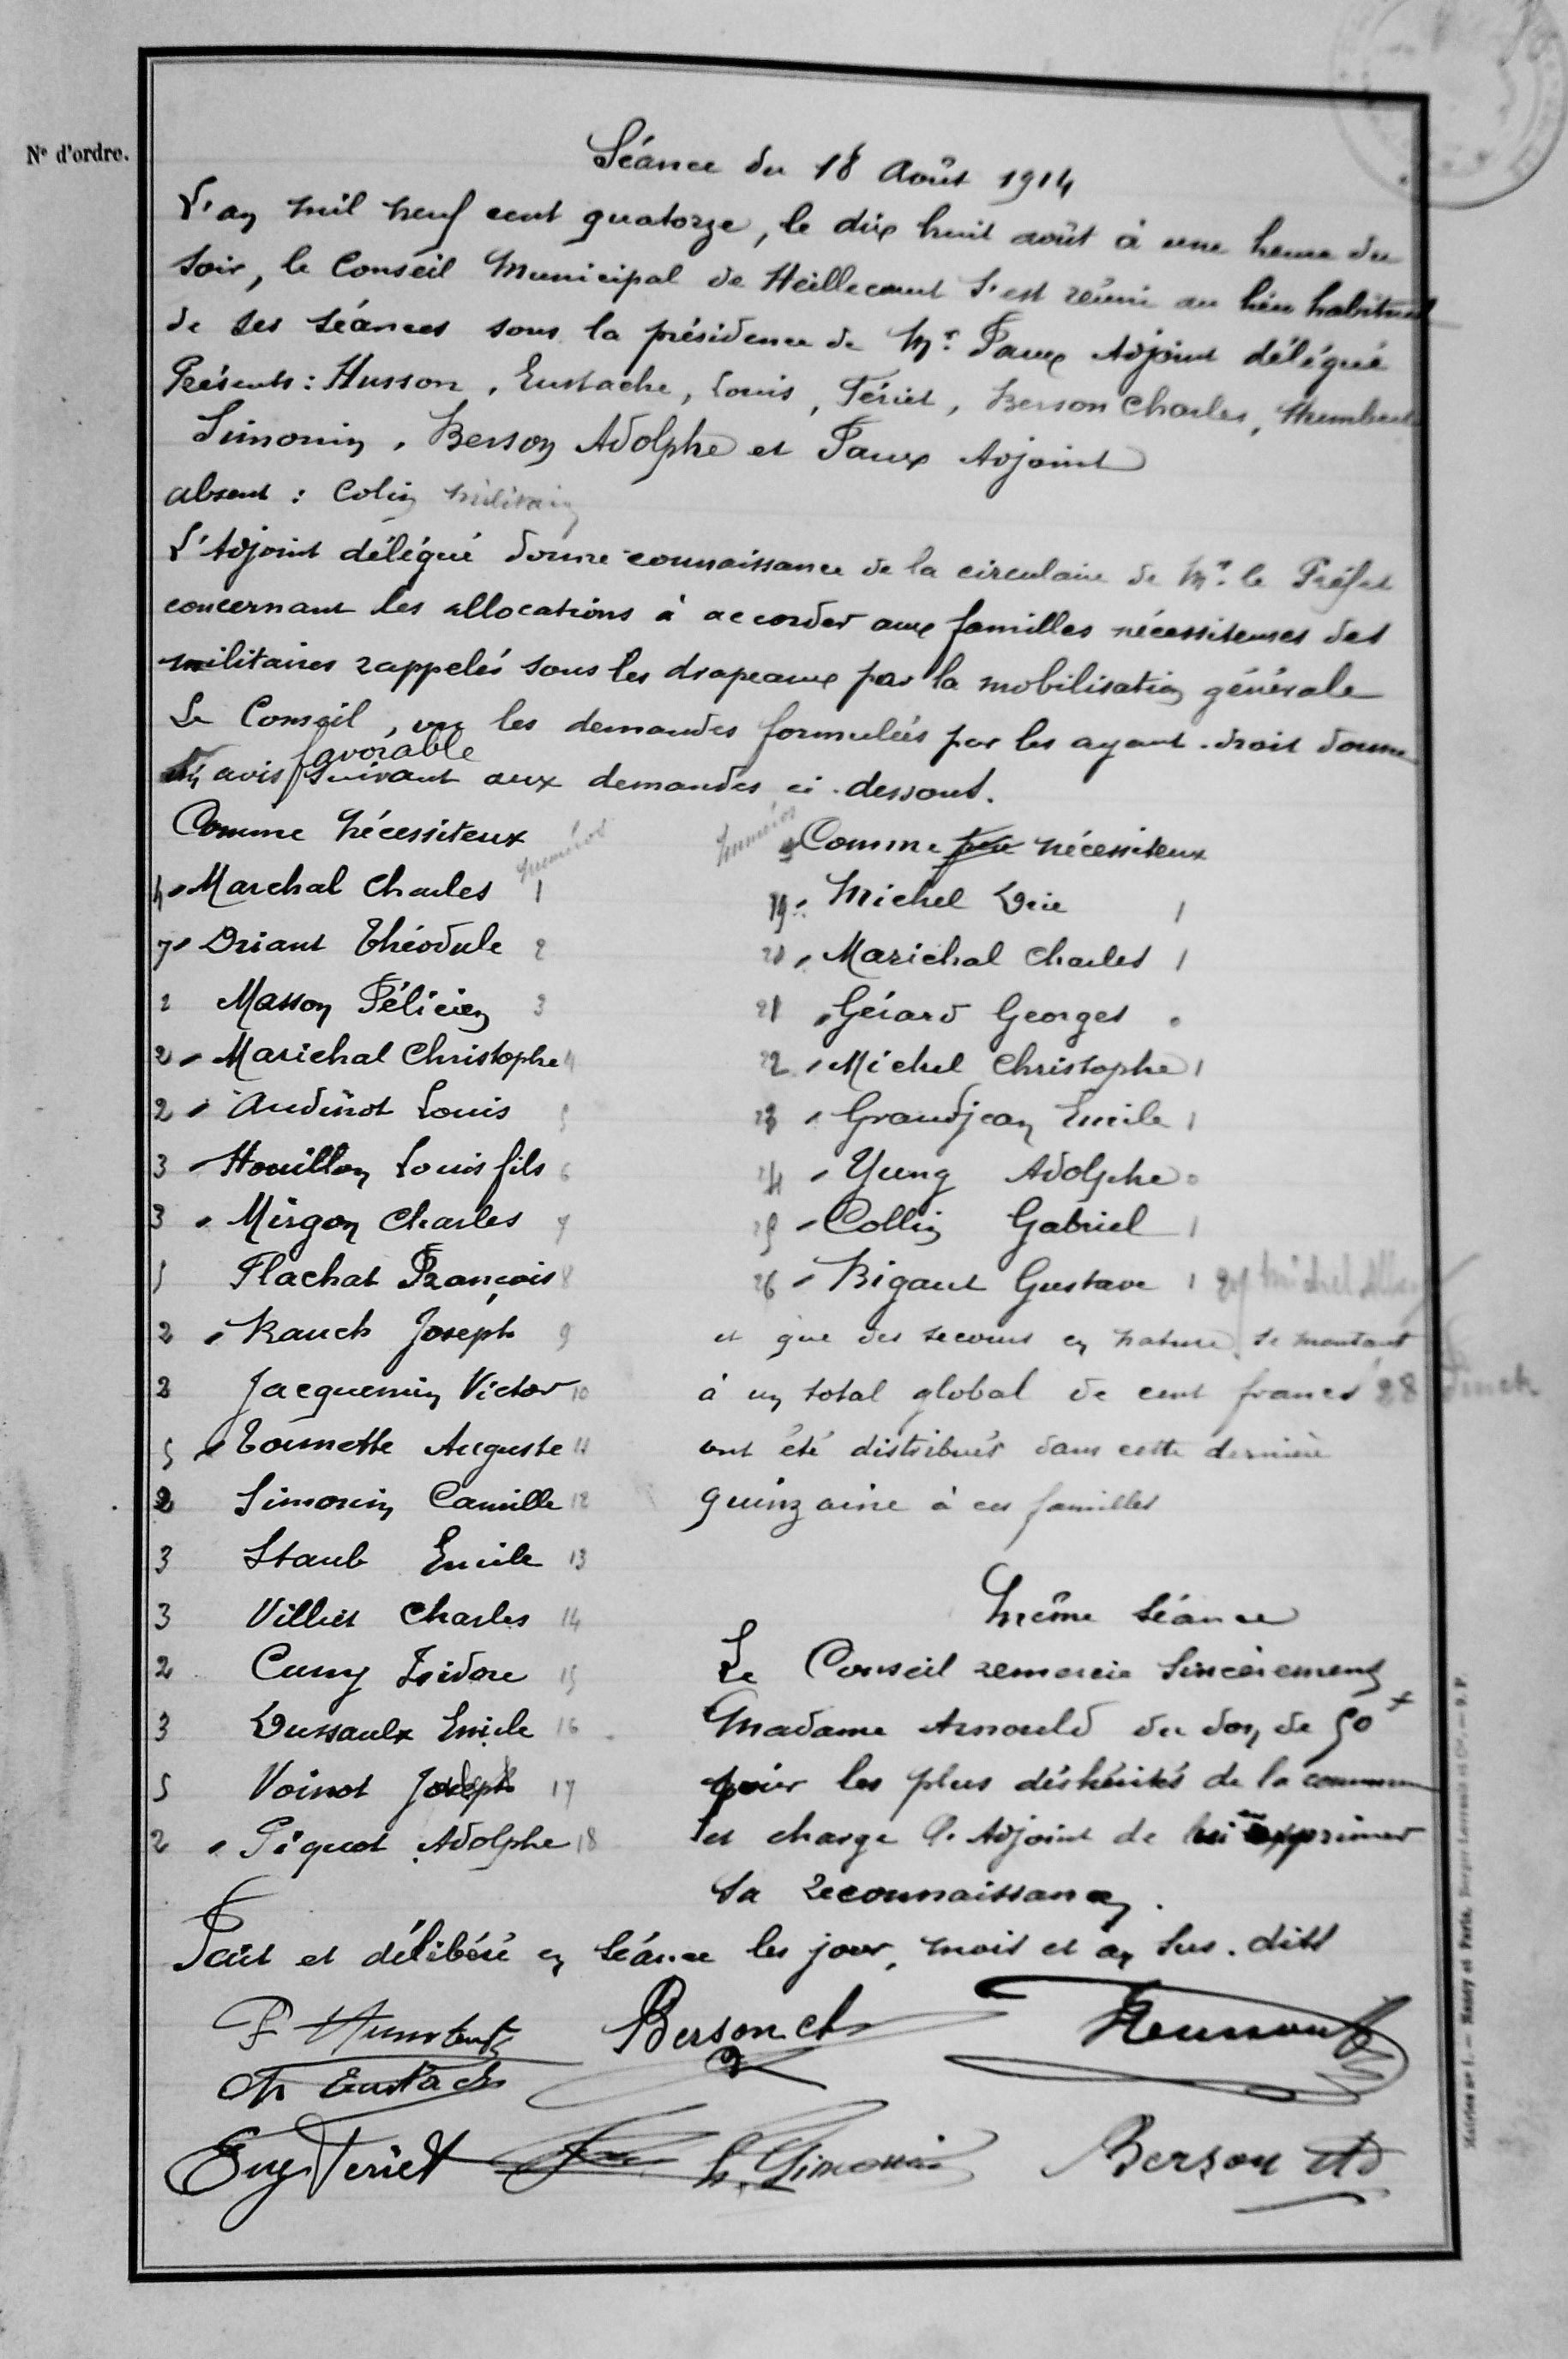 N° d'ordre.
Séance du 18 Août 1914
L'an mil neuf cent quatorze, le dix huit août à une heure du
soir, le Conseil Municipal de Heillecourt s'est réuni au lieu habituel
de ses séances sous la présidence de Mr. Faux Adjoint délégué
Présents : Husson, Eustache, Louis, Fériet, Berson Charles, Humbert
Simonin, Berson Adolphe et Faux Adjoint
absent : Colin militaire
L'Adjoint délégué donne connaissance de la circulaire de Mr. le Préfet
concernant les allocations à accorder aux familles nécessiteuses des
militaires rappelés sous les drapeaux par la mobilisation générale
Le Conseil, vu les demandes formulées par les ayant-droit donne
favorable
un avis suivant aux demandes ci-dessous.
Comme nécessiteux numéros
4 Marchal Charles 1
7 Driant Théodule 2
2 Masson Félicien 3
2 Marichal Christophe 4
2 Audinot Louis 5
3 Houillon Louis fils 6
3 Mirgon Charles 7
5 Flachat François 8
2 Rauch Joseph 9
2 Jacquemin Victor 10
5 Tournette Auguste 11
2 Simonin Camille 12
3 Staub Emile 13
3 Villiet Charles 14
2 Cuny Isidore 15
3 Dussaulx Emile 16
5 Voinot Joseph 17
2 Piquot Adolphe 18
numéros Comme peu nécessiteux
19 Michel Dié 1
20 Marichal Charles 1
21 Gérard Georges 0
22 Michel Christophe 1
23 Grandjean Emile 1
24 Yung Adolphe 0
25 Collin Gabriel 1
26 Bigaut Gustave 1 27 Michel
et que des secours en nature se montant
à un total global de cent francs 28
ont été distribués dans cette dernière
quinzaine à ces familles
Même séance
Le Conseil remercie sincèrement
Madame Arnould du don de 50 f
pour les plus déshérités de la commune
et charge l'Adjoint de lui en exprimer
sa reconnaissance.
Fait et délibéré en séance les jour, mois et an sus-dits
F Humbert Berson Ch Husson
Ch Eustache
Eug Fériet Simonin Berson Ad